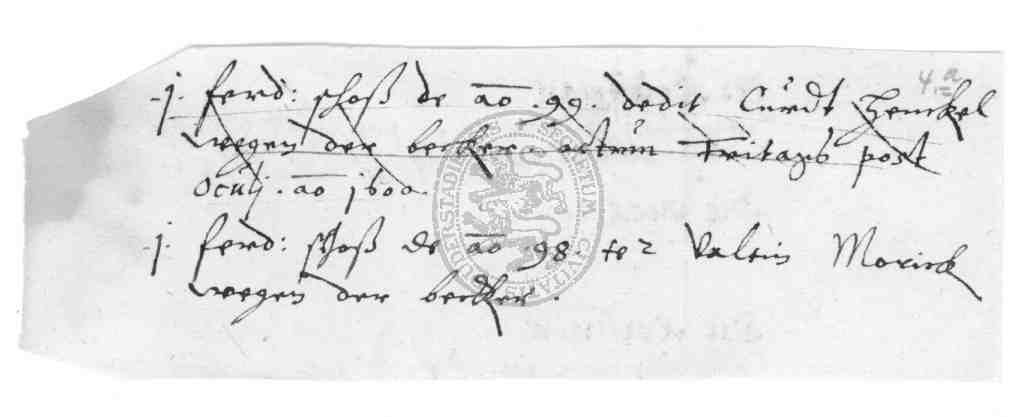 j. ferd: schoß de ao .99. dedit Curdt Henckel
wegen der becker actum Fritags post
Oculj . ao 1600.
j. ferd: schoß de ao .98. te2 Valtin Morick
wegen der becker.
4a
SIGILLUM SECRETUM CIVITATIS DUDERSTADIENSIS